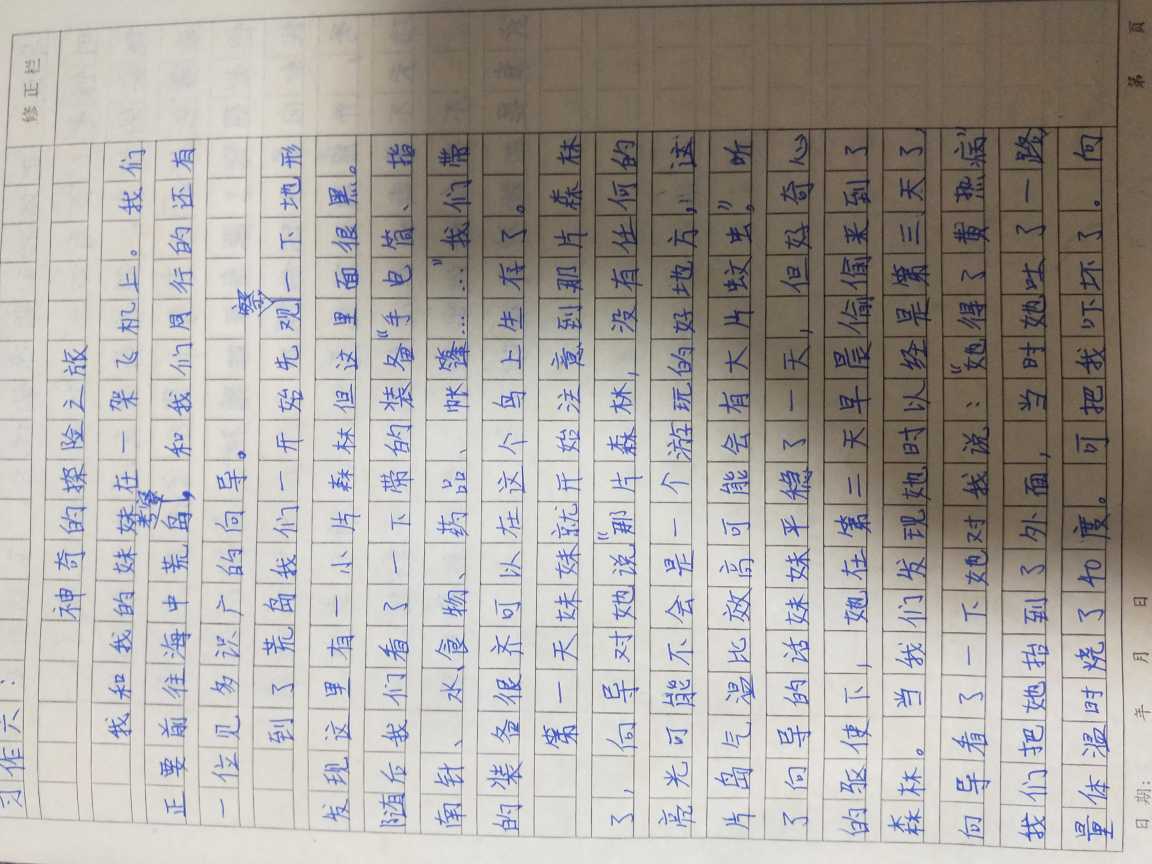 修正栏
习作六：
神奇的探险之旅
我和我的妹妹在一架飞机上。我们
正要前往海中荒岛，和我们同行的还有
一位见多识广的向导。
到了荒岛我们一开始先观察一下地形
发现这里有一小片森林但这里面很黑。
随后我们看了一下带的装备“手电筒、指
南针、水、食物、药品、帐篷……”我们带
的装备很齐可以在这个鸟上生存了。
第一天妹妹就开始注意到那片森林
了，向导对她说“那片森林，没有任何的
亮光可能不会是一个游玩的好地方，这
片岛气温比效高可能会有大片蚊虫。”听
了向导的话妹妹平稳了一天，但好奇心
的驱使下，她在第二天早晨偷偷来到了
森林。当我们发现她时以经是第三天了，
向导看了一下她对我说：“她得了黄热病”
我们把她抬到了外面，当时她吐了一路，
量体温时烧了40度。可把我吓坏了。向
日期: 年 月 日 第 頁